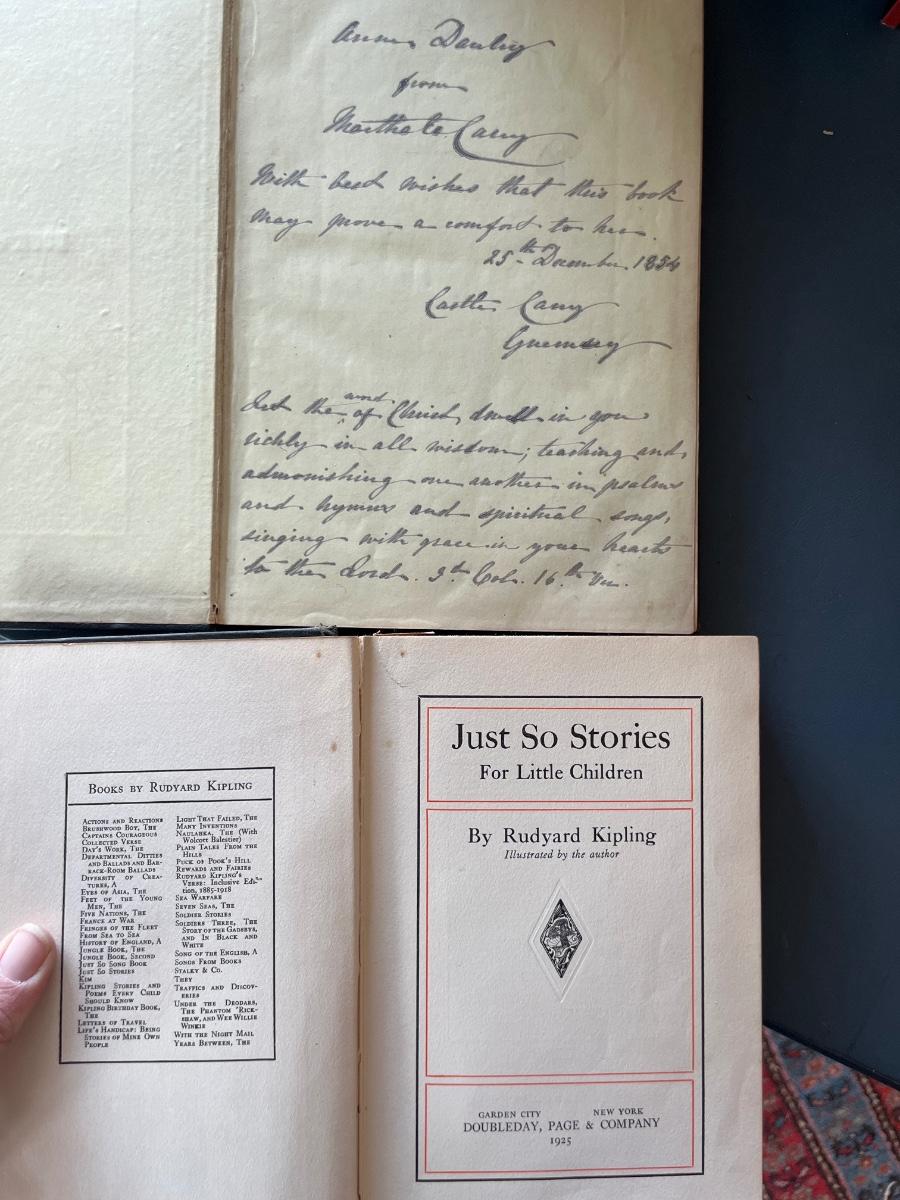 Anne Danby
from
Martha Le Carey
With best wishes that this book
may prove a comfort to her.
25th December. 1854
Castle Carey
Guernsey
Let the word of Christ dwell in you
richly in all wisdom; teaching and,
admonishing one another in psalms
and hymns and spiritual songs,
singing with grace in your hearts
to the Lord. 3d Col. 16th Ver.
BOOKS BY RUDYARD KIPLING
ACTIONS AND REACTIONS
BRUSHWOOD BOY, THE
CAPTAINS COURAGEOUS
COLLECTED VERSE
DAY'S WORK, THE
DEPARTMENTAL DITTIES
AND BALLADS AND BAR-
RACK-ROOM BALLADS
DIVERSITY OF CREA-
TURES, A
EYES OF ASIA, THE
FEET OF THE YOUNG
MEN, THE
FIVE NATIONS, THE
FRANCE AT WAR
FRINGES OF THE FLEET
FROM SEA TO SEA
HISTORY OF ENGLAND, A
JUNGLE BOOK, THE
JUNGLE BOOK, SECOND
JUST SO SONG BOOK
JUST SO STORIES
KIM
KIPLING STORIES AND
POEMS EVERY CHILD
SHOULD KNOW
KIPLING BIRTHDAY BOOK,
THE
LETTERS OF TRAVEL
LIFE'S HANDICAP: BEING
STORIES OF MINE OWN
PEOPLE
LIGHT THAT FAILED, THE
MANY INVENTIONS
NAULAHKA, THE (With
Wolcott Balestier)
PLAIN TALES FROM THE
HILLS
PUCK OF POOK'S HILL
REWARDS AND FAIRIES
RUDYARD KIPLING'S
VERSE: Inclusive Edi-
tion, 1885-1918
SEA WARFARE
SEVEN SEAS, THE
SOLDIER STORIES
SOLDIERS THREE, THE
STORY OF THE GADSBYS,
AND IN BLACK AND
WHITE
SONG OF THE ENGLISH, A
SONGS FROM BOOKS
STALKY & CO.
THEY
TRAFFICS AND DISCOV-
ERIES
UNDER THE DEODARS,
THE PHANTOM 'RICK-
SHAW, AND WEE WILLIE
WINKIE
WITH THE NIGHT MAIL
YEARS BETWEEN, THE
Just So Stories
For Little Children
By Rudyard Kipling
Illustrated by the author
GARDEN CITY NEW YORK
DOUBLEDAY, PAGE & COMPANY
1925